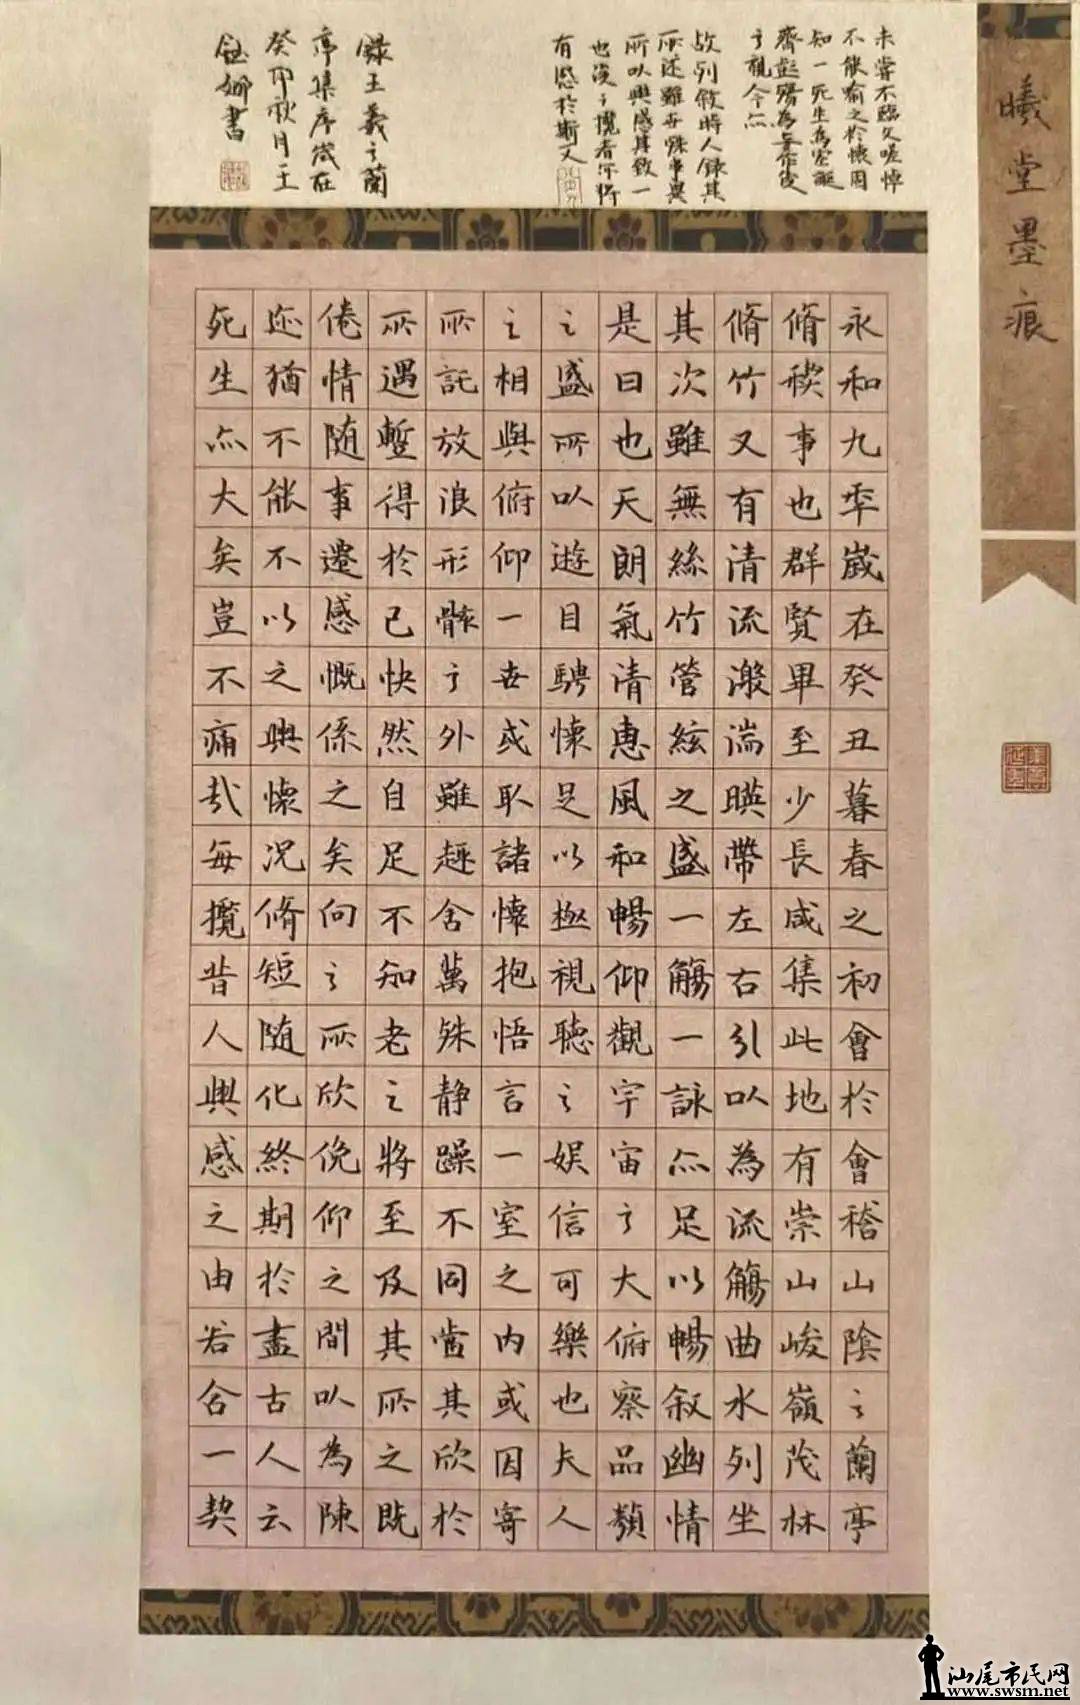 曦堂墨痕
未嘗不臨文嗟悼
不能喻之於懷固
知一死生為虛誕
齊彭殤為妄作後
之視今亦
故列敘時人錄其
所述雖世殊事異
所以興感其致一
也後之攬者亦將
有感於斯文
永和九年歲在癸丑暮春之初會於會稽山陰之蘭亭
脩稧事也群賢畢至少長咸集此地有崇山峻嶺茂林
脩竹又有清流激湍暎帶左右引以為流觴曲水列坐
其次雖無絲竹管絃之盛一觴一詠亦足以暢叙幽情
是日也天朗氣清惠風和暢仰觀宇宙之大俯察品類
之盛所以遊目騁懷足以極視聽之娛信可樂也夫人
之相與俯仰一世或取諸懷抱悟言一室之內或因寄
所託放浪形骸之外雖趣舍萬殊静躁不同當其欣於
所遇蹔得於己快然自足不知老之將至及其所之既
倦情随事遷感慨係之矣向之所欣俛仰之間以為陳
迹猶不能不以之興懷況脩短随化終期於盡古人云
死生亦大矣豈不痛哉每攬昔人興感之由若合一契
錄王羲之蘭
亭集序歲在
癸卯秋月王
鈺娜書
汕尾市民网
www.swsm.net